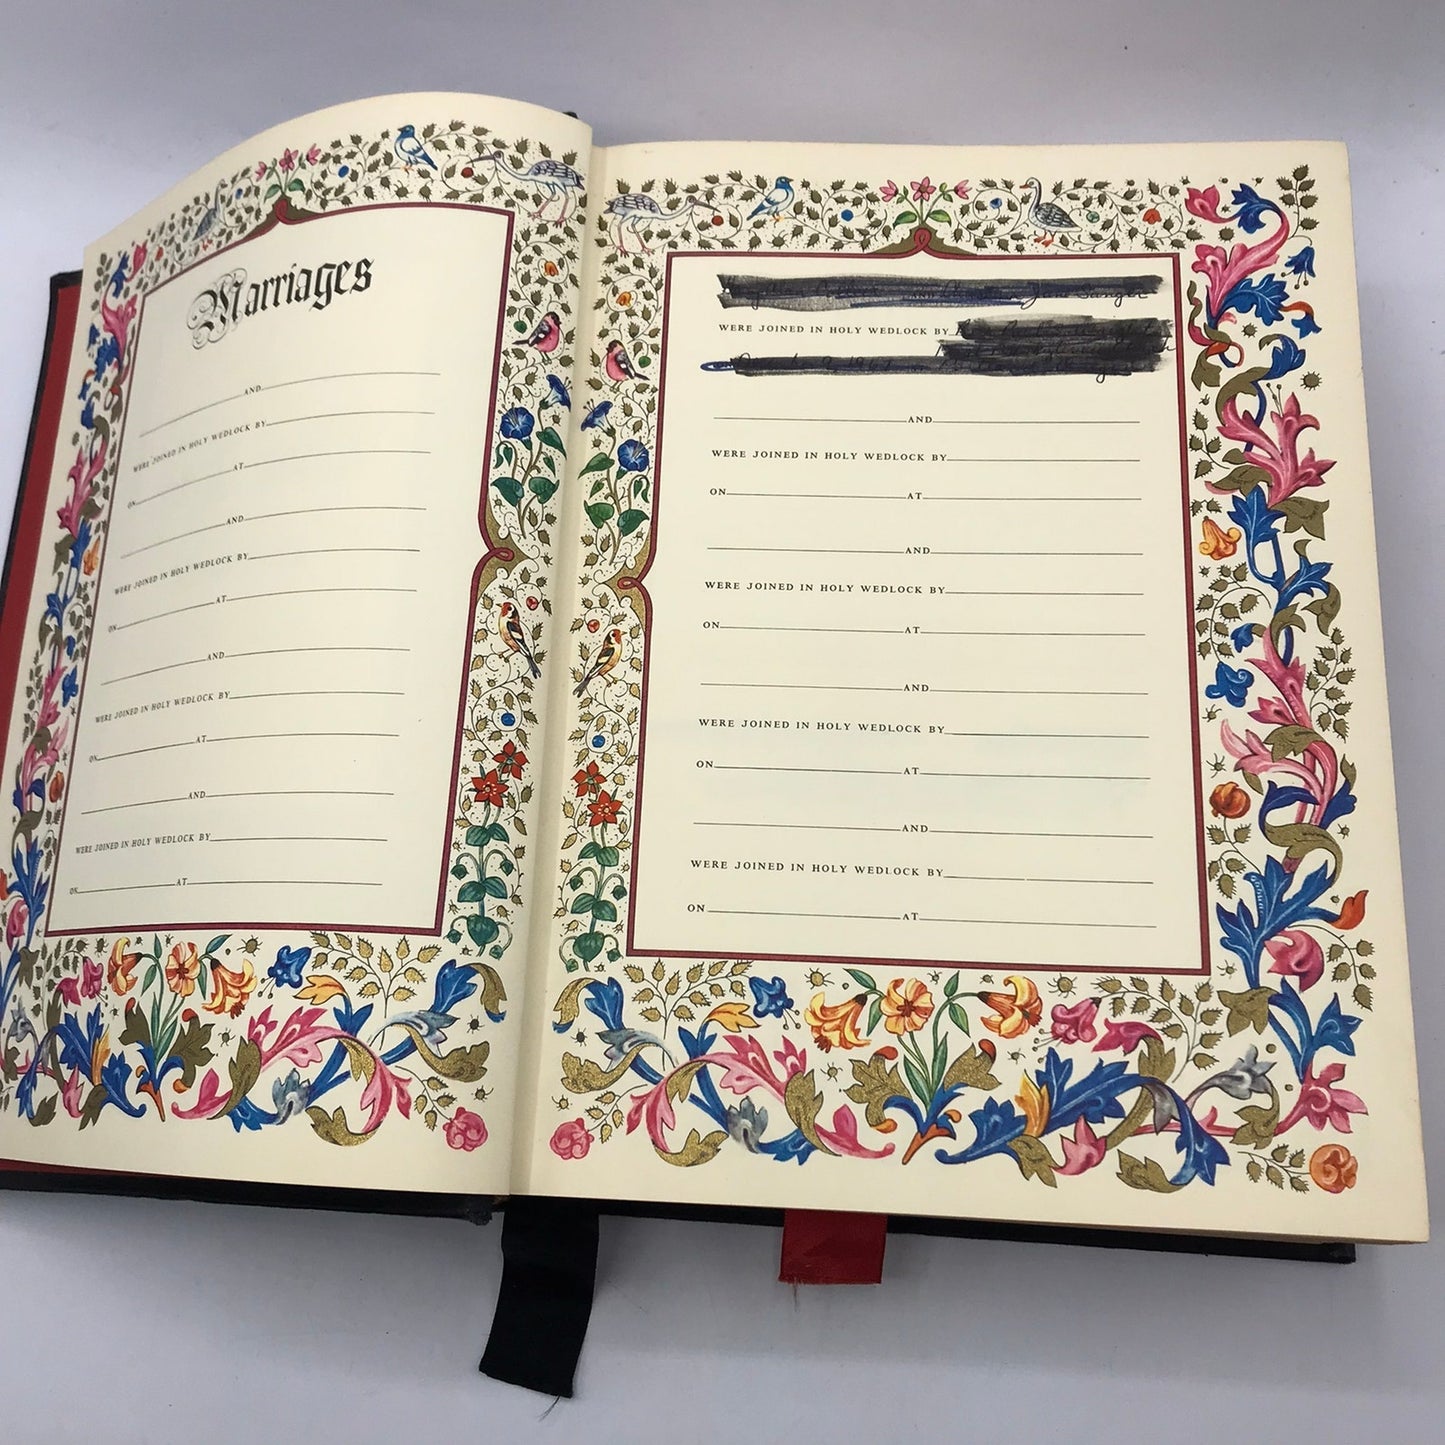 Marriages
AND
WERE JOINED IN HOLY WEDLOCK BY
ON AT
AND
WERE JOINED IN HOLY WEDLOCK BY
ON AT
AND
WERE JOINED IN HOLY WEDLOCK BY
ON AT
AND
WERE JOINED IN HOLY WEDLOCK BY
ON AT
WERE JOINED IN HOLY WEDLOCK BY
AND
WERE JOINED IN HOLY WEDLOCK BY
ON AT
AND
WERE JOINED IN HOLY WEDLOCK BY
ON AT
AND
WERE JOINED IN HOLY WEDLOCK BY
ON AT
AND
WERE JOINED IN HOLY WEDLOCK BY
ON AT